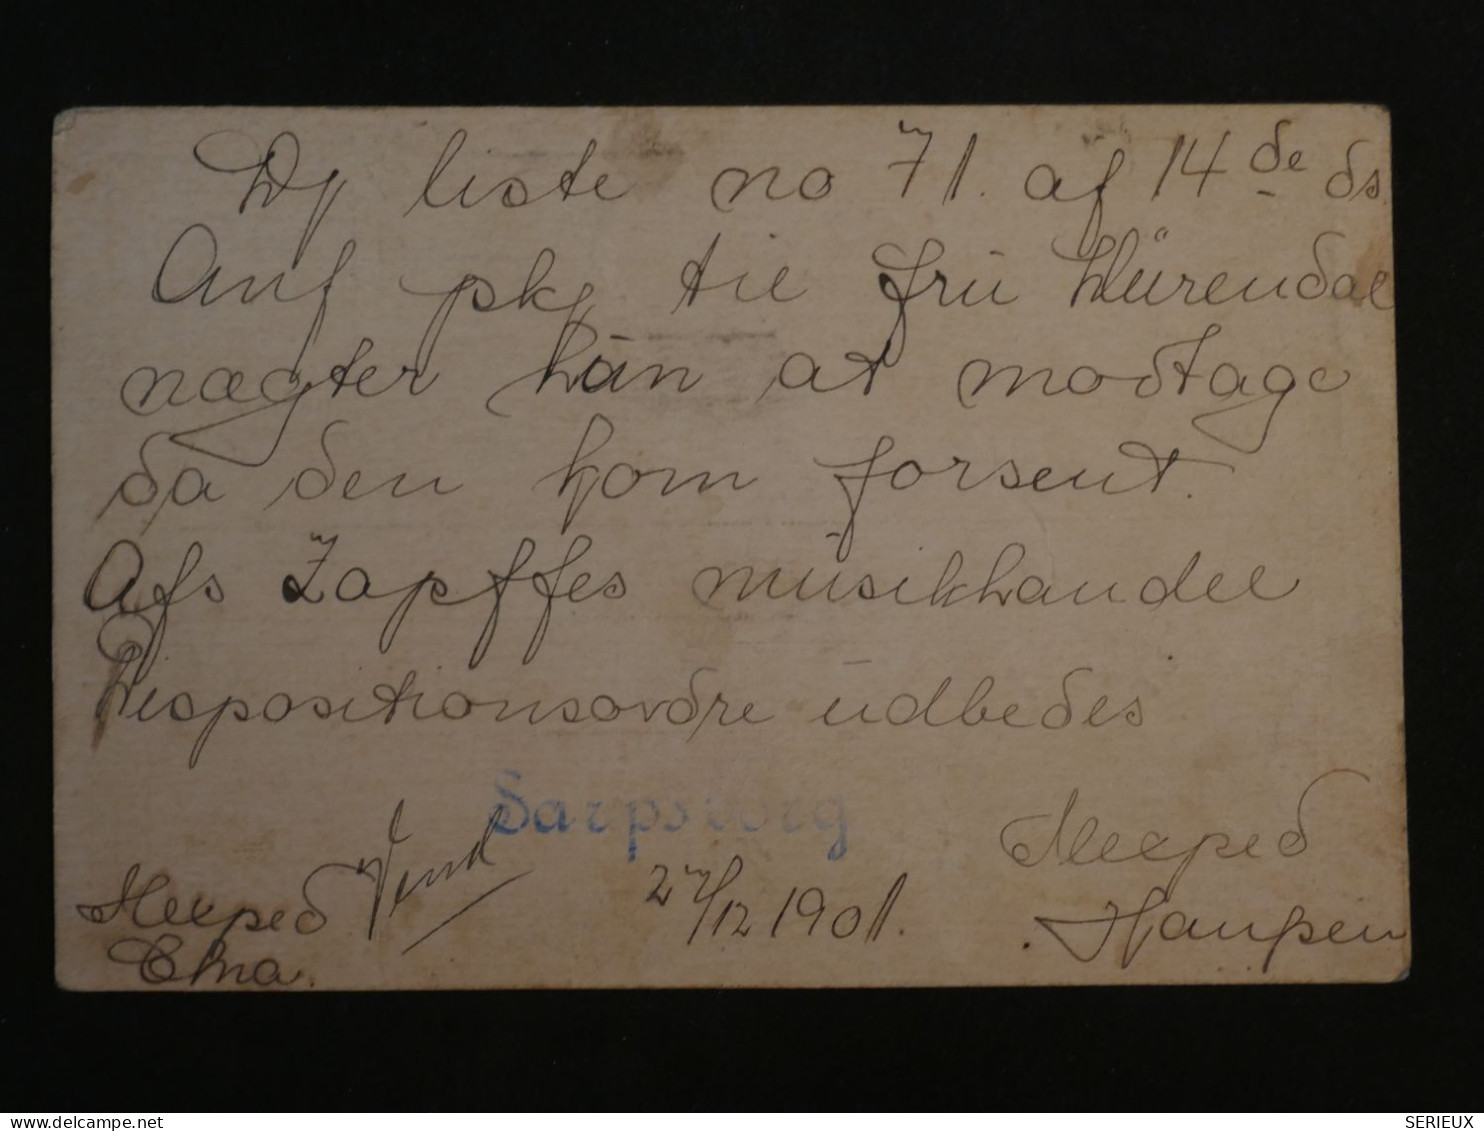 Dy liste no 71. af 14de ds.
Anf pkg til frú Würendal
nægter hún at modtage
da den kom forsent.
Afs Zapffes músikhandel
Dispositionsordre údbedes
Sarpsborg
Vend
27/12 1901.
Elna.
delcampe.net
SERIEUX